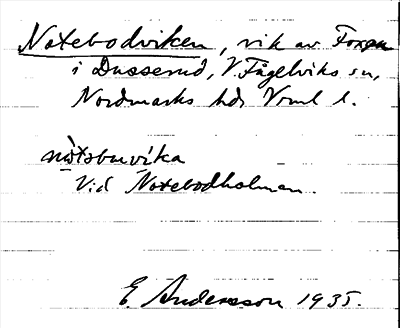 Notebodviken, vik av Foxen
i Dusserud, V. Fågelviks sn,
Nordmarks hd Vrml l.
nòtsbuvíka
Vid Notebodholmen.
E. Andersson 1935.